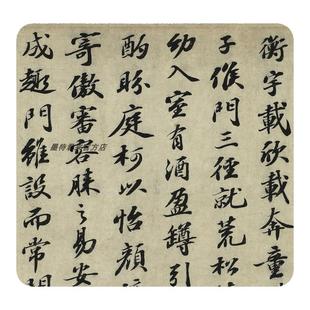 衡宇載欣載奔童
子候門三徑就荒松
幼入室有酒盈罇引
酌眄庭柯以怡顏
寄傲審容膝之易安
成趣門雖設而常
方店